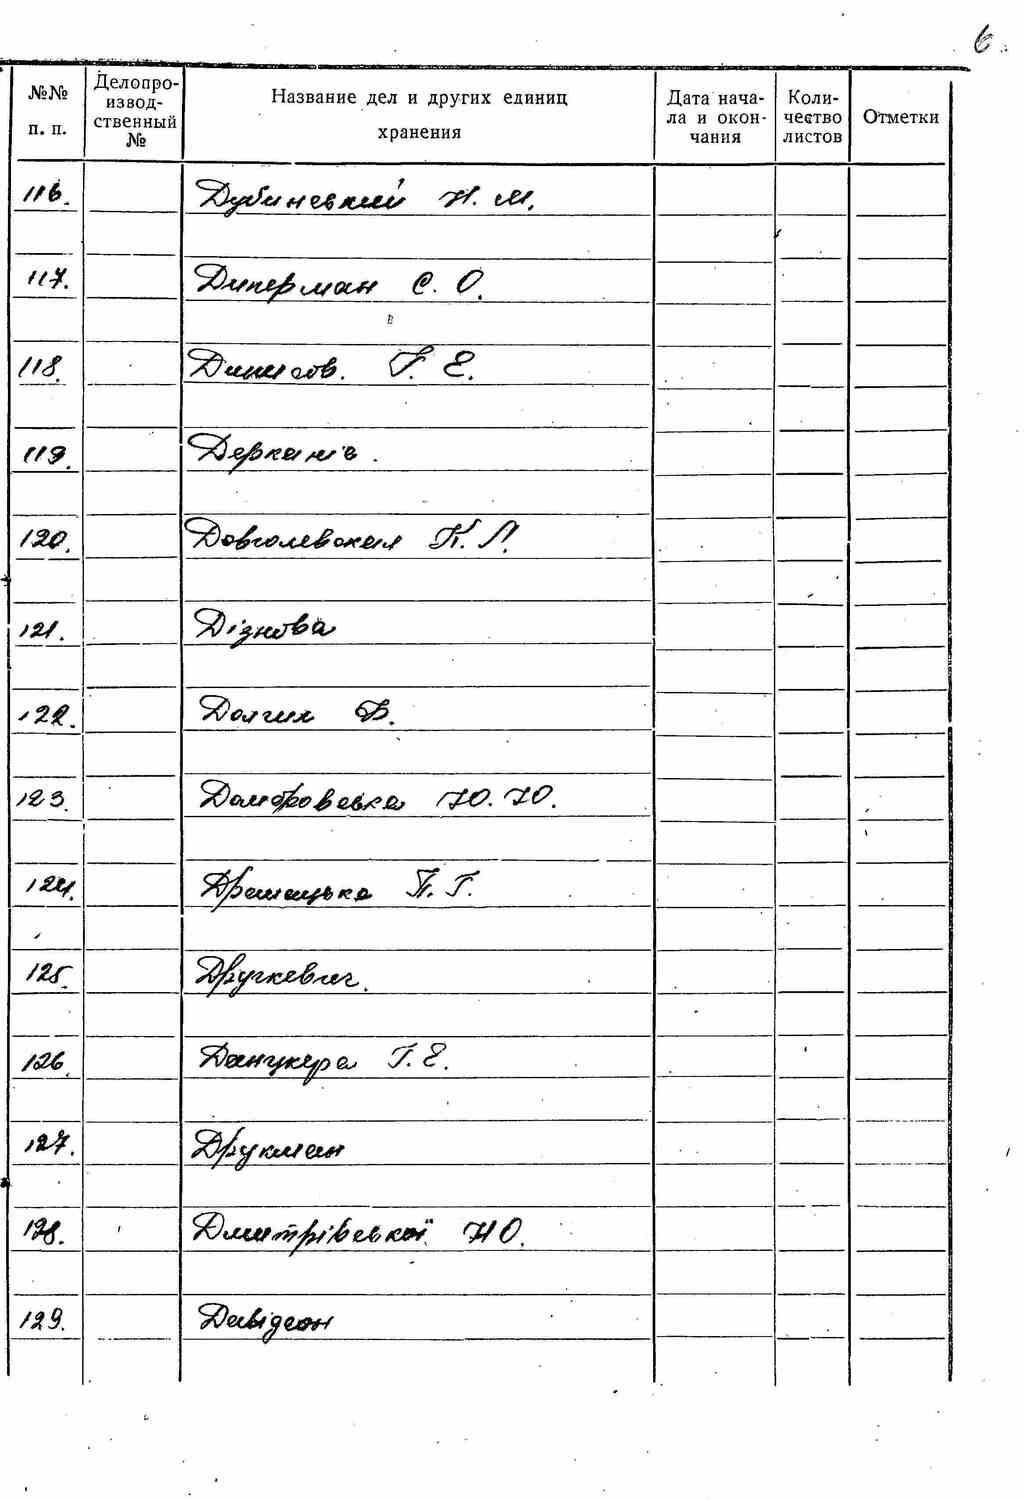 6.
№№ п. п.
Делопро-
извод-
ственный
№
Название дел и других единиц
хранения
Дата нача-
ла и окон-
чания
Коли-
чество
листов
Отметки
116. Дубинский Н. М.
117. Диперман С. О.
118. Денисов. Г. Е.
119.
120. Довголевская К. Л.
121. Дізнова
122. Долгих Ф.
123. Домбровська Ю. Ю.
124. П. Г.
125. Друцкевич.
126. Г. Е.
127. Друкман
128. Дмитрівської Н О.
129. Давідсон